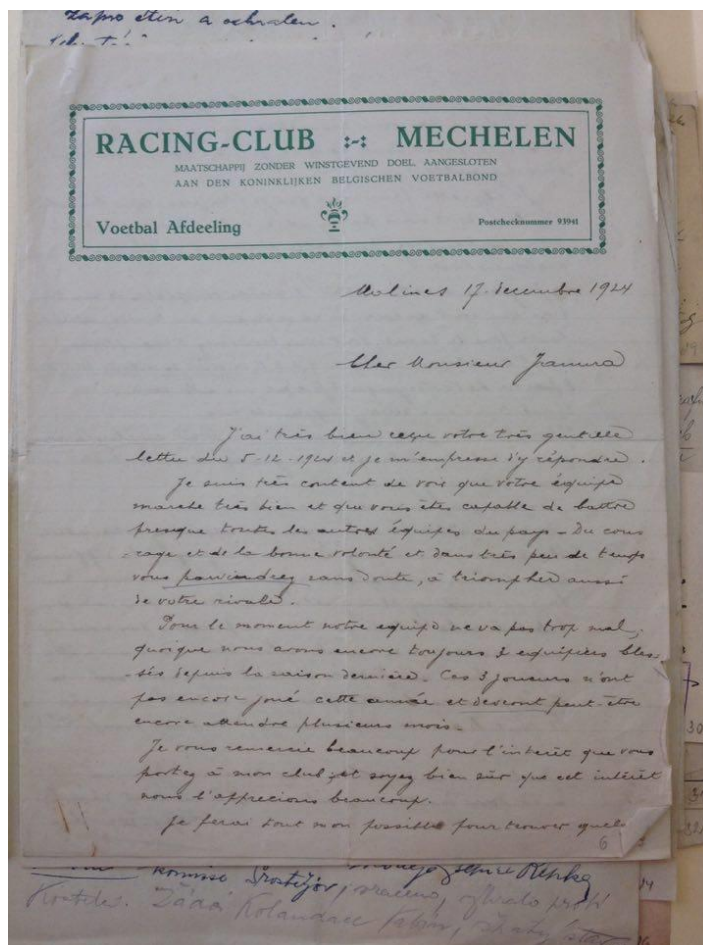 zapro
a
RACING-CLUB :-: MECHELEN
MAATSCHAPPIJ ZONDER WINSTGEVEND DOEL AANGESLOTEN
AAN DEN KONINKLIJKEN BELGISCHEN VOETBALBOND
Voetbal Afdeeling
Postchecknummer 93941
Malines 17 decembre 1924
Cher Monsieur
J'ai très bien reçu votre très gentille
lettre du 5-12-1924 et je m'empresse d'y répondre.
Je suis très content de voir que votre équipe
marche très bien et que vous êtes capable de battre
presque toutes les autres équipes du pays - Du cou
-rage et de la bonne volonté et dans très peu de temps
vous parviendrez sans doute, a triompher aussi
de votre rivale.
Pour le moment notre equipe ne va pas trop mal,
quoique nous avons encore toujours 3 equipiers bles-
-sés depuis la saison dernière. Ces 3 joueurs n'ont
pas encore joué cette année et devront peut-être
encore attendre plusieurs mois.
Je vous remercie beaucoup pour l'intérêt que vous
portez à mon club, et soyez bien sûr que cet intérêt
nous l'apprecions beaucoup.
Je ferai tout mon possible pour trouver quelq
6
Prostějov, vraceno,
Žádá